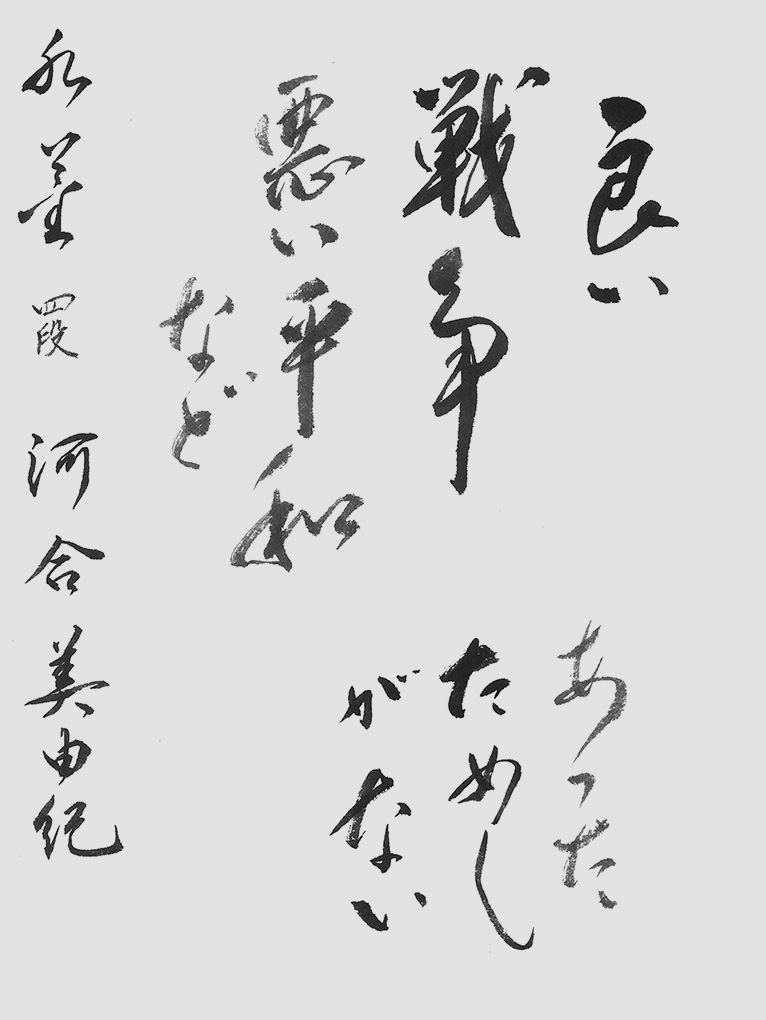 良い
戦争
悪い平和
など
あった
ためし
がない
四段 河合美由紀